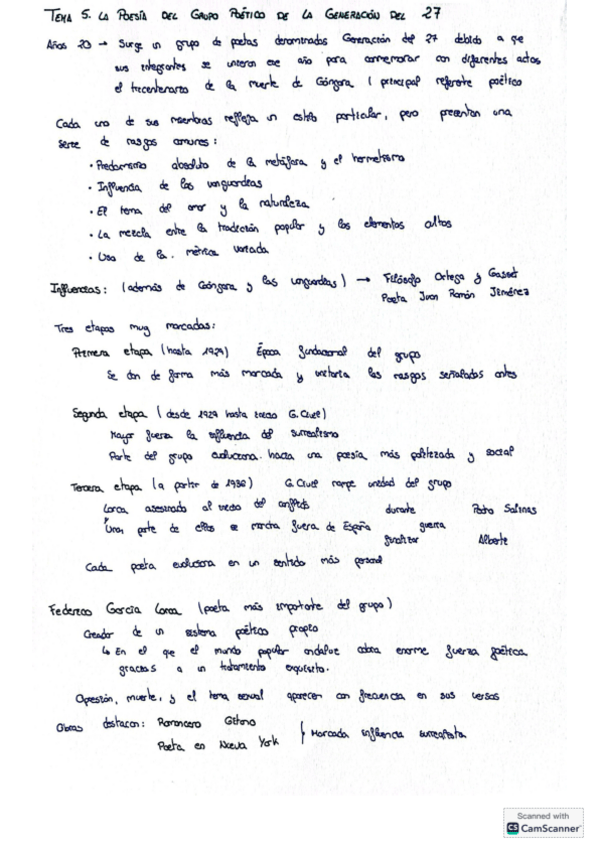 TEMA 5. LA POESÍA DEL GRUPO POÉTICO DE LA GENERACIÓN DEL 27
Años 20 → Surge un grupo de poetas denominados Generación del 27 debido a que
sus integrantes se unieron ese año para conmemorar con diferentes actos
el tricentenario de la muerte de Góngora ( principal referente poético
Cada uno de sus miembros refleja un estilo particular, pero presentan una
serie de rasgos comunes:
• Predominio absoluto de la metáfora y el hermetismo
• Influencia de las vanguardias
• El tema del amor y la naturaleza
• La mezcla entre la tradición popular y los elementos cultos
• Uso de la métrica variada
Influencias: (además de Góngora y las vanguardias) → Filósofo Ortega y Gasset
Poeta Juan Ramón Jiménez
Tres etapas muy marcadas:
Primera etapa (hasta 1929) Época fundacional del grupo
Se dan de forma más marcada y unitaria los rasgos señalados antes
Segunda etapa (desde 1929 hasta inicio G. Civil)
Mayor fuerza la influencia del surrealismo
Parte del grupo evoluciona hacia una poesía más politizada y social
Tercera etapa (a partir de 1936) G. Civil rompe unidad del grupo
Lorca asesinado al inicio del conflicto durante Pedro Salinas
Una parte de ellos se marcha fuera de España guerra
finalizar Alberti
Cada poeta evoluciona en un sentido más personal
Federico García Lorca (poeta más importante del grupo)
Creador de un sistema poético propio
↳ En el que el mundo popular andaluz cobra enorme fuerza poética
gracias a un tratamiento exquisito.
Opresión, muerte, y el tema sexual aparecen con frecuencia en sus versos
Obras destacan: Romancero Gitano
Poeta en Nueva York } Marcada influencia surrealista
Scanned with
CS CamScanner